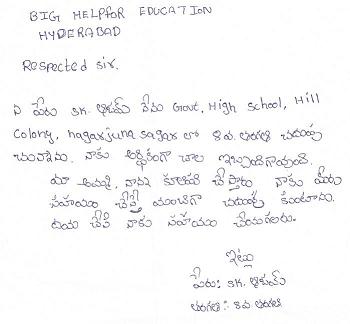 BIG HELP for EDUCATION
HYDERABAD
Respected sir,
నా పేరు SK. అక్రమ్ నేను Govt. High School, Hill
Colony, nagarjuna sagar లో 8వ తరగతి చదువు
చున్నాను. నాకు ఆర్థికంగా చాల ఇబ్బందిగావుంది.
మా అమ్మ, నాన్న కూలిపని చేస్తారు నాకు మీరు
సహయం చేస్తే మంచిగా చదువు కుంటాను.
దయ చేసి నాకు సహయం చేయగలరు.
ఇట్లు
పేరు: SK. అక్రమ్
తరగతి: 8వ తరగతి